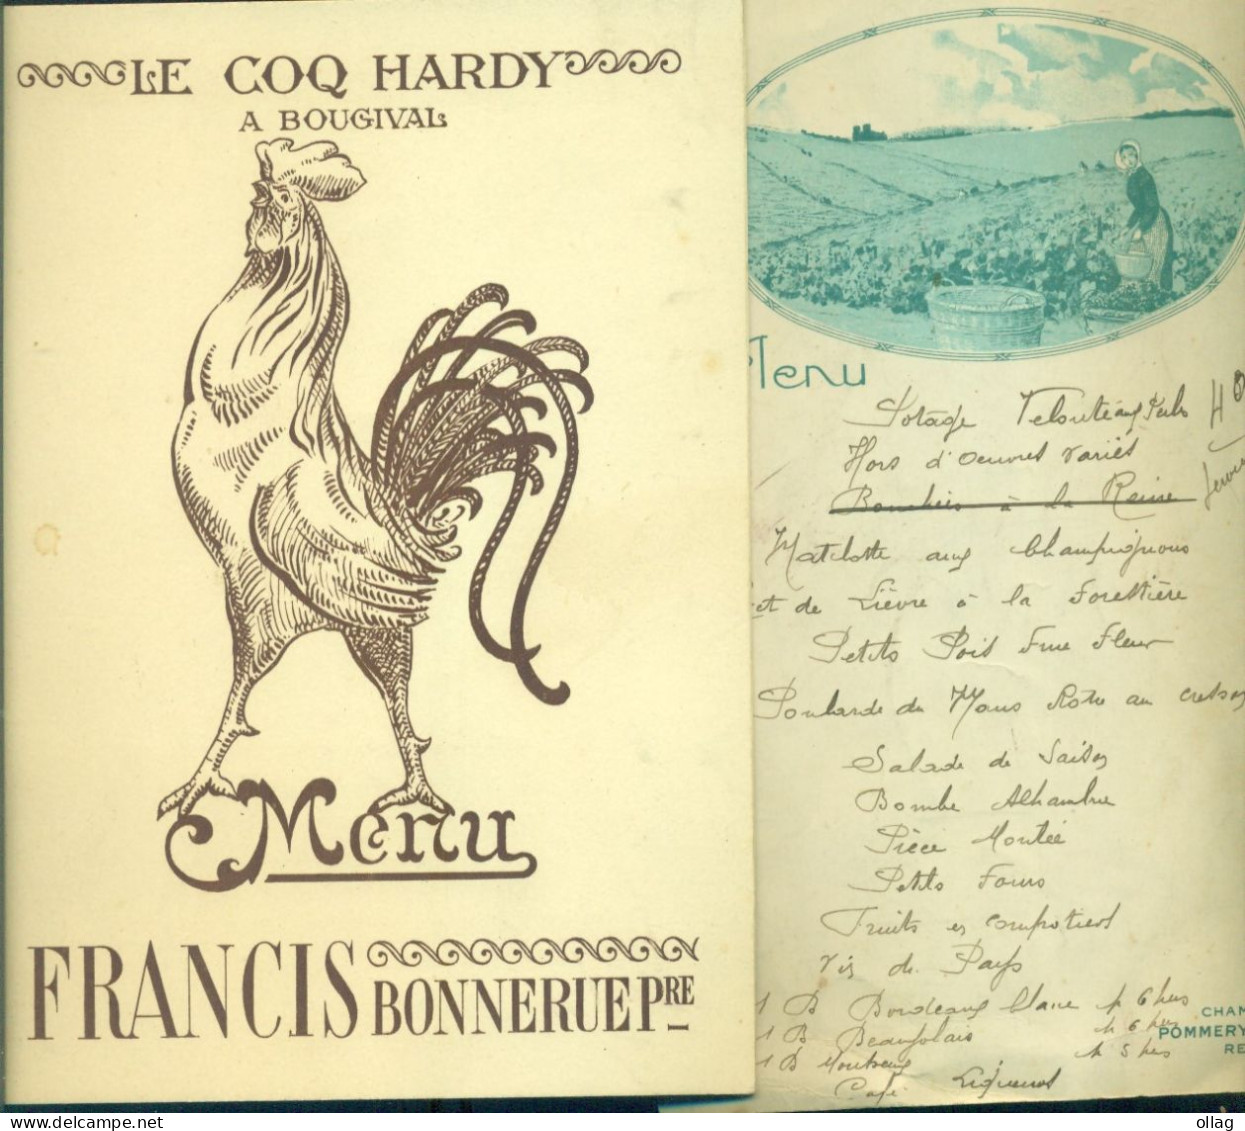 LE COQ HARDY
A BOUGIVAL
Menu
FRANCIS
BONNERUE PRE
Menu
Potage Velouté aux 48
Hors d'Oeuvres Variés
Bouchées à la Reine
Matelotte aux Champignons
et de Lièvre à la Forestière
Petits Pois Fine Fleur
Poularde du Mans Rotie au cresson
Salade de Saison
Bombe Alhambra
Pièce Montée
Petits Fours
Fruits en compotiers
Vin de Pays
1 B Bordeaux blanc p 6 pers
1 B Beaujolais p 6 pers
1 B p 5 pers
Café Liqueurs
CHAM
POMMERY
RE
ollag